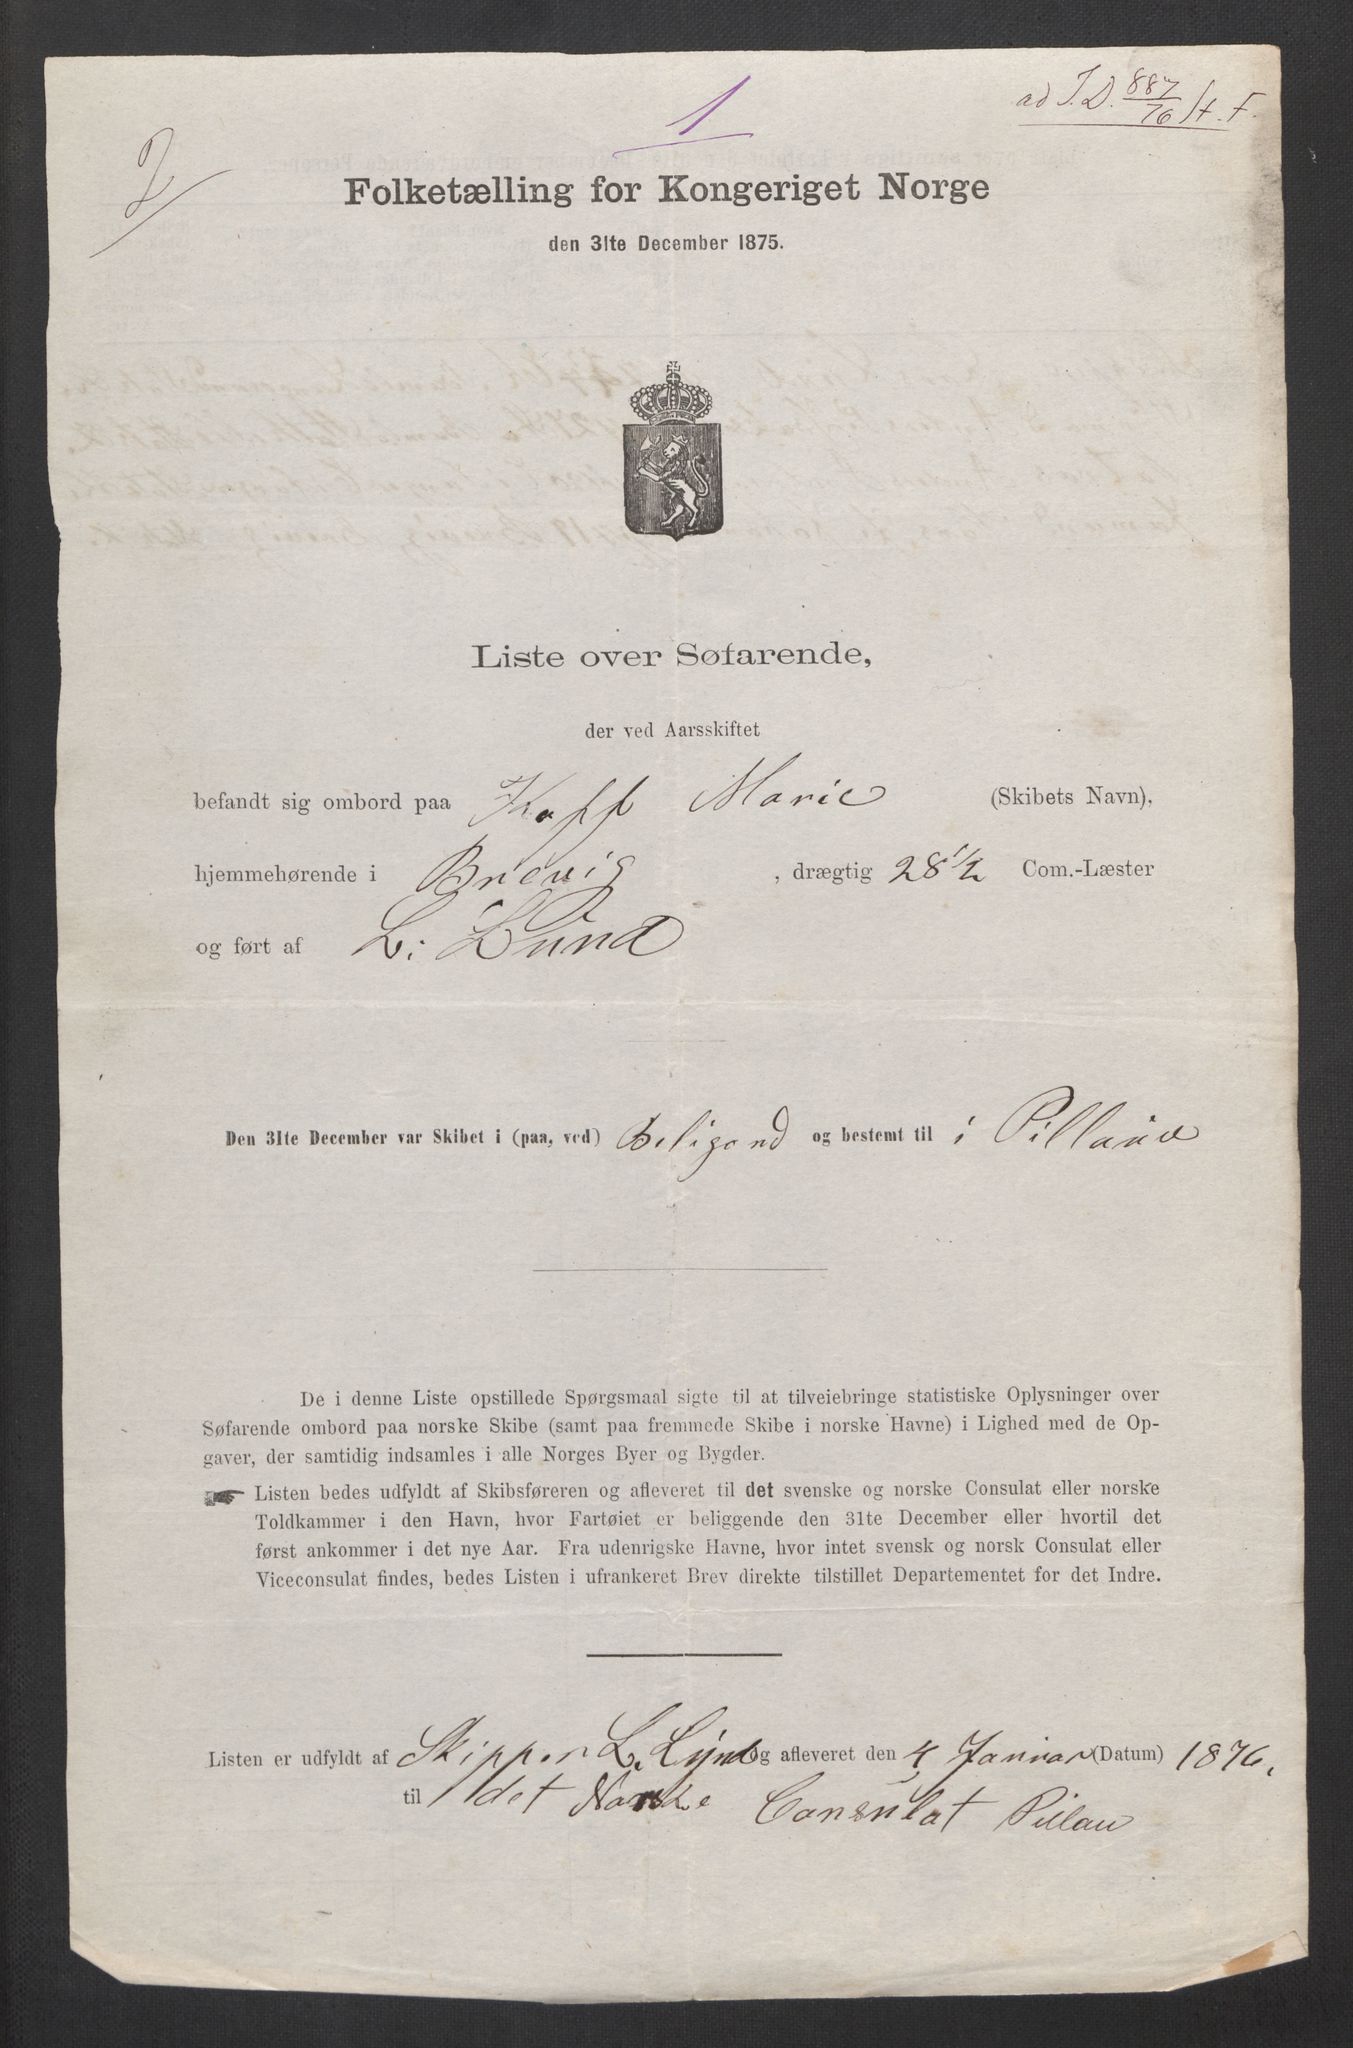 1
ad I.D. 887/76 St. F.
2
Folketælling for Kongeriget Norge
den 31te December 1875.
Liste over Søfarende,
der ved Aarsskiftet
befandt sig ombord paa Koff Marie (Skibets Navn),
hjemmehørende i Brevig, drægtig 28 1/2 Com.-Læster
og ført af L. Lund
Den 31te December var Skibet i (paa, ved) Beligend og bestemt til i Pillaue
De i denne Liste opstillede Spørgsmaal sigte til at tilveiebringe statistiske Oplysninger over
Søfarende ombord paa norske Skibe (samt paa fremmede Skibe i norske Havne) i Lighed med de Op-
gaver, der samtidig indsamles i alle Norges Byer og Bygder.
Listen bedes udfyldt af Skibsføreren og afleveret til det svenske og norske Consulat eller norske
Toldkammer i den Havn, hvor Fartøiet er beliggende den 31te December eller hvortil det
først ankommer i det nye Aar. Fra udenrigske Havne, hvor intet svensk og norsk Consulat eller
Viceconsulat findes, bedes Listen i ufrankeret Brev direkte tilstillet Departementet for det Indre.
Listen er udfyldt af Skipper L. Lund og afleveret den 4 Januar (Datum) 1876.
til det Norske Consulat Pillau